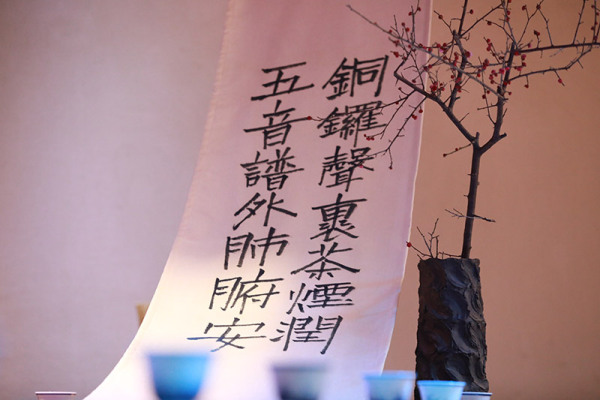 銅鑼聲裏茶煙潤
五音譜外肺腑安